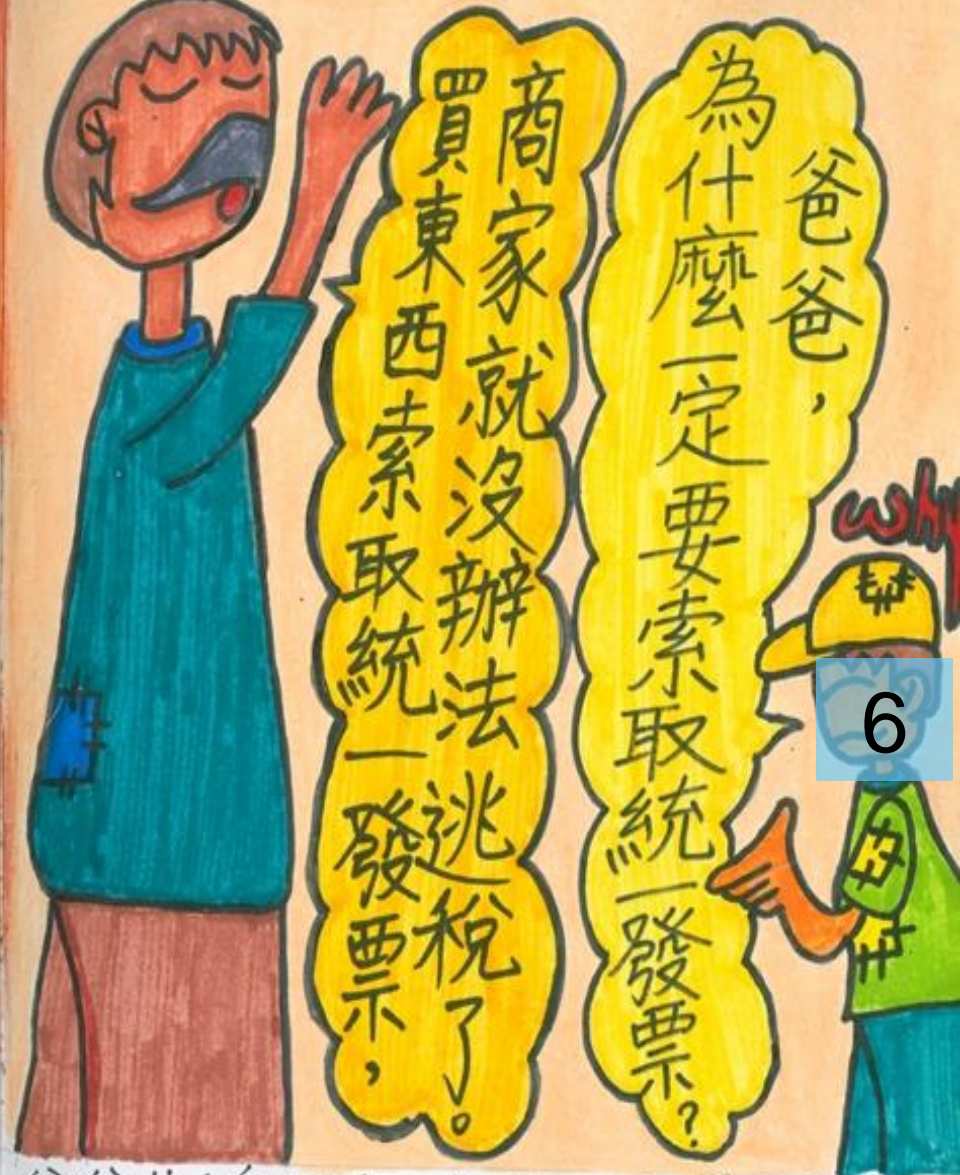 爸爸，
為什麼一定要索取統一發票?
買東西索取統一發票，
商家就沒辦法逃稅了。
why
6